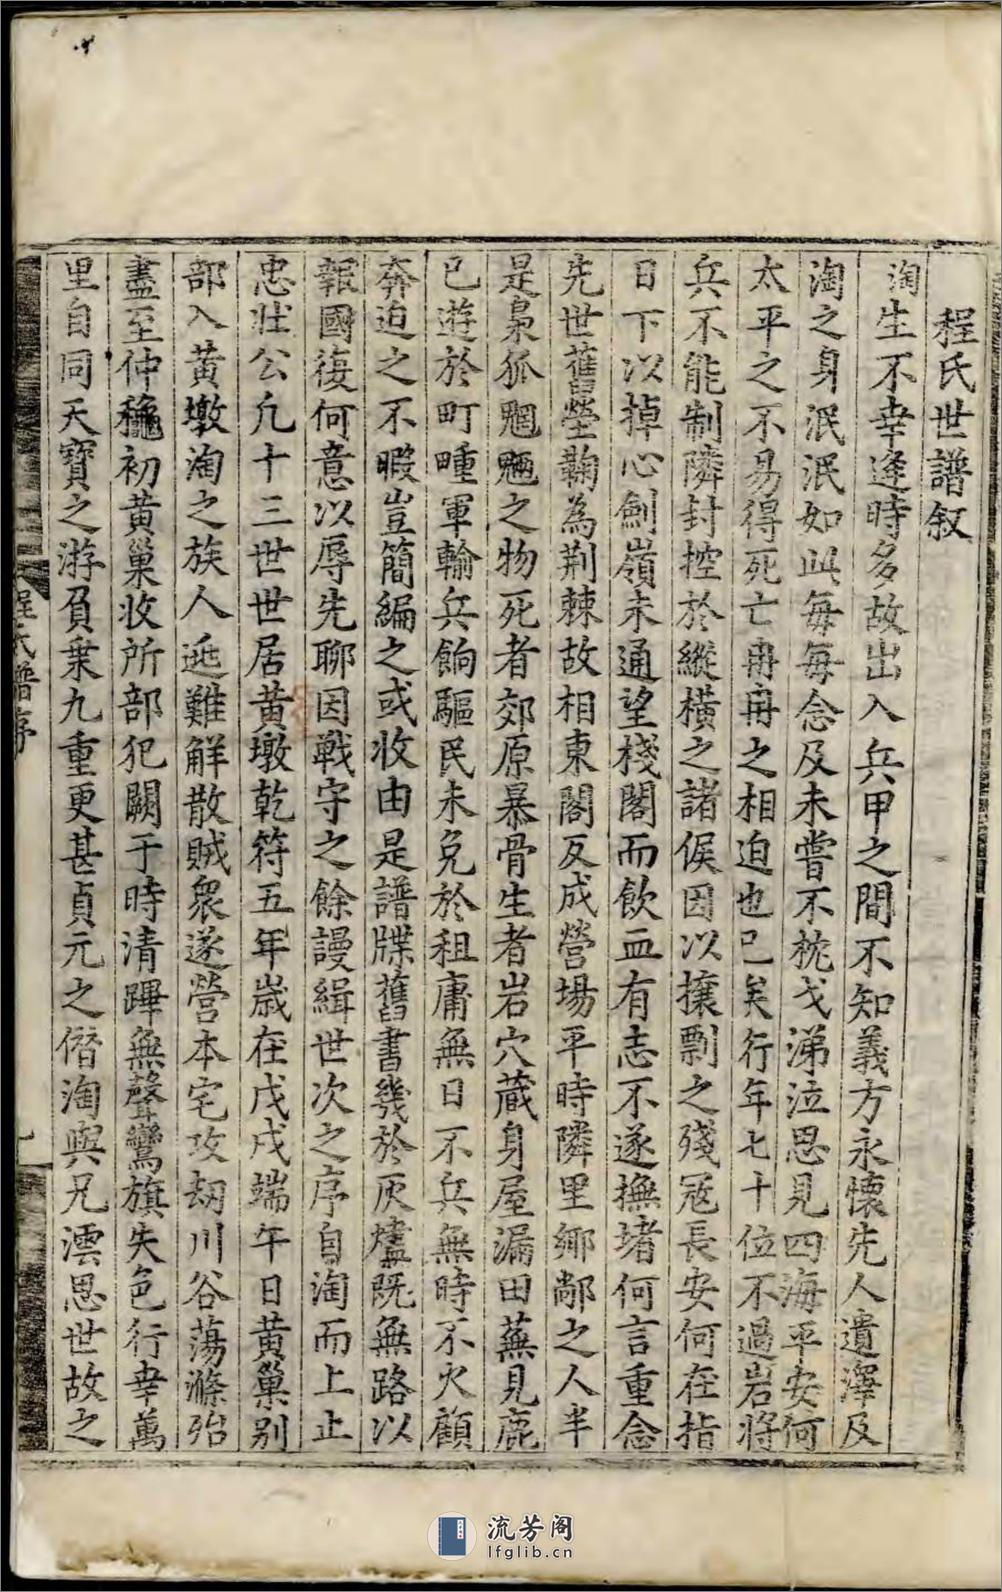 程氏世譜叙
淘生不幸逢時多故出入兵甲之間不知義方永懷先人遺澤及
淘之身泯泯如此每每念及未嘗不枕戈涕泣思見四海平安何
太平之不易得死亡冉冉之相迫也已矣行年七十位不過岩將
兵不能制隣封控於縱橫之諸侯因以攘剽之殘寇長安何在指
日下以掉心劍嶺未通望棧閣而飲血有志不遂撫堵何言重念
先世舊塋鞠為荆棘故相東閣反成營場平時隣里鄉鄰之人半
是梟狐魍魎之物死者郊原暴骨生者岩穴藏身屋漏田蕪見鹿
已遊於町畽軍輸兵餉驅民未免於租庸無日不兵無時不火顧
奔迫之不暇豈簡編之或收由是譜牒舊書幾於灰爐既無路以
報國復何意以辱先聊因戰守之餘謾緝世次之序自淘而上止
忠壯公凢十三世世居黄墩乾符五年歳在戊戌端午日黄巢别
部入黄墩淘之族人逃難解散賊衆遂營本宅攻刼川谷蕩滌殆
盡至仲龝初黄巢收所部犯闕于時清蹕無聲鸞旗失色行幸萬
里自同天寶之游負乗九重更甚貞元之僭淘與兄澐思世故之
程氏譜序
一
流芳阁
lfglib.cn